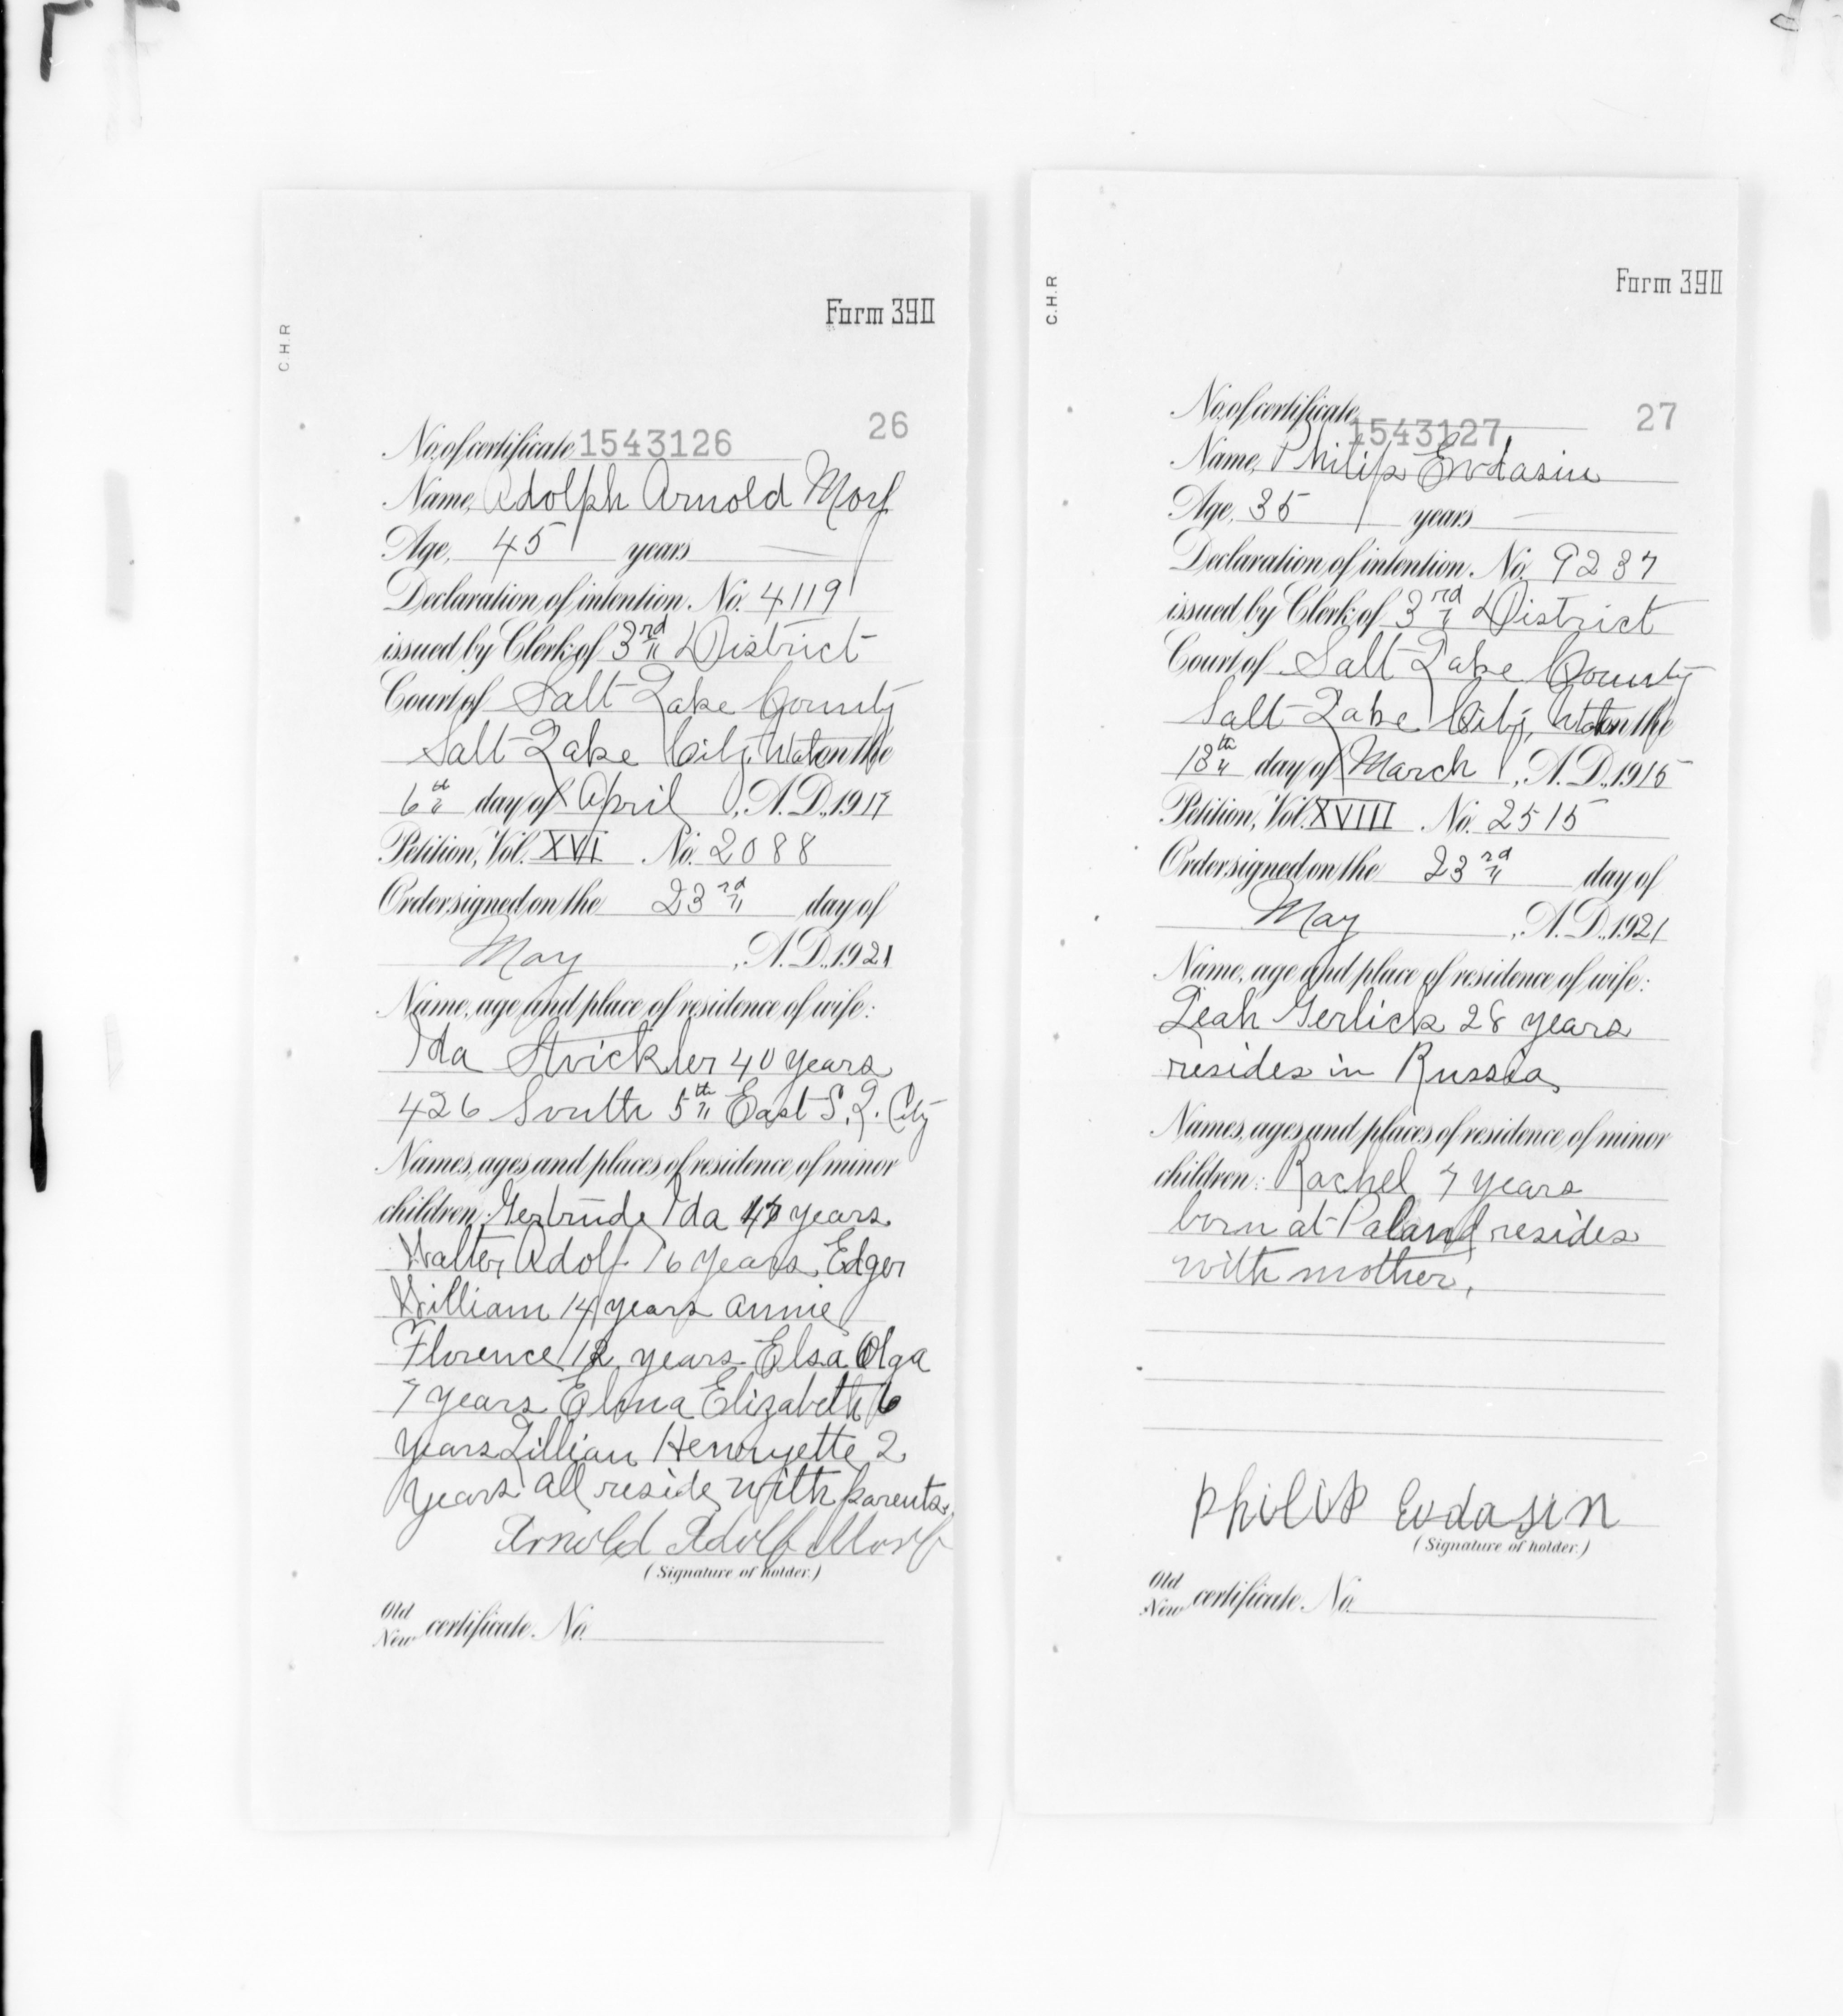 C.H.R
Form 390
26
No. of certificate, 1543126
Name, Adolph Arnold Morf
Age, 45 years
Declaration of intention. No. 4119
issued by Clerk of 3rd District
Court of Salt Lake County
Salt Lake City, Utah on the
6th day of April, A.D., 1917
Petition, Vol. XVI No. 2088
Order signed on the 23rd day of
May, A.D., 1921
Name, age and place of residence of wife:
Ida Strickler 40 years
426 South 5th East S.L. City
Names, ages and places of residence of minor
children: Gertrude Ida years
Walter Adolf 16 years Edger
William 14 years Annie
Florence 12 years Elsa Olga
7 years Elma Elizabeth 6
years Lillian Henryette 2
years all reside with parents.
Arnold Adolf Morf
(Signature of holder.)
Old
New certificate. No.
C.H.R
Form 390
27
No. of certificate, 1543127
Name, Philip Evdasin
Age, 35 years
Declaration of intention. No. 9237
issued by Clerk of 3rd District
Court of Salt Lake County
Salt Lake City, Utah on the
18th day of March, A.D., 1915
Petition, Vol. XVIII No. 2515
Order signed on the 23rd day of
May, A.D., 1921
Name, age and place of residence of wife:
Leah Gerlick 28 years
resides in Russia
Names, ages and places of residence of minor
children: Rachel 7 years
born at Poland resides
with mother,
Philip Evdasin
(Signature of holder.)
Old
New certificate. No.